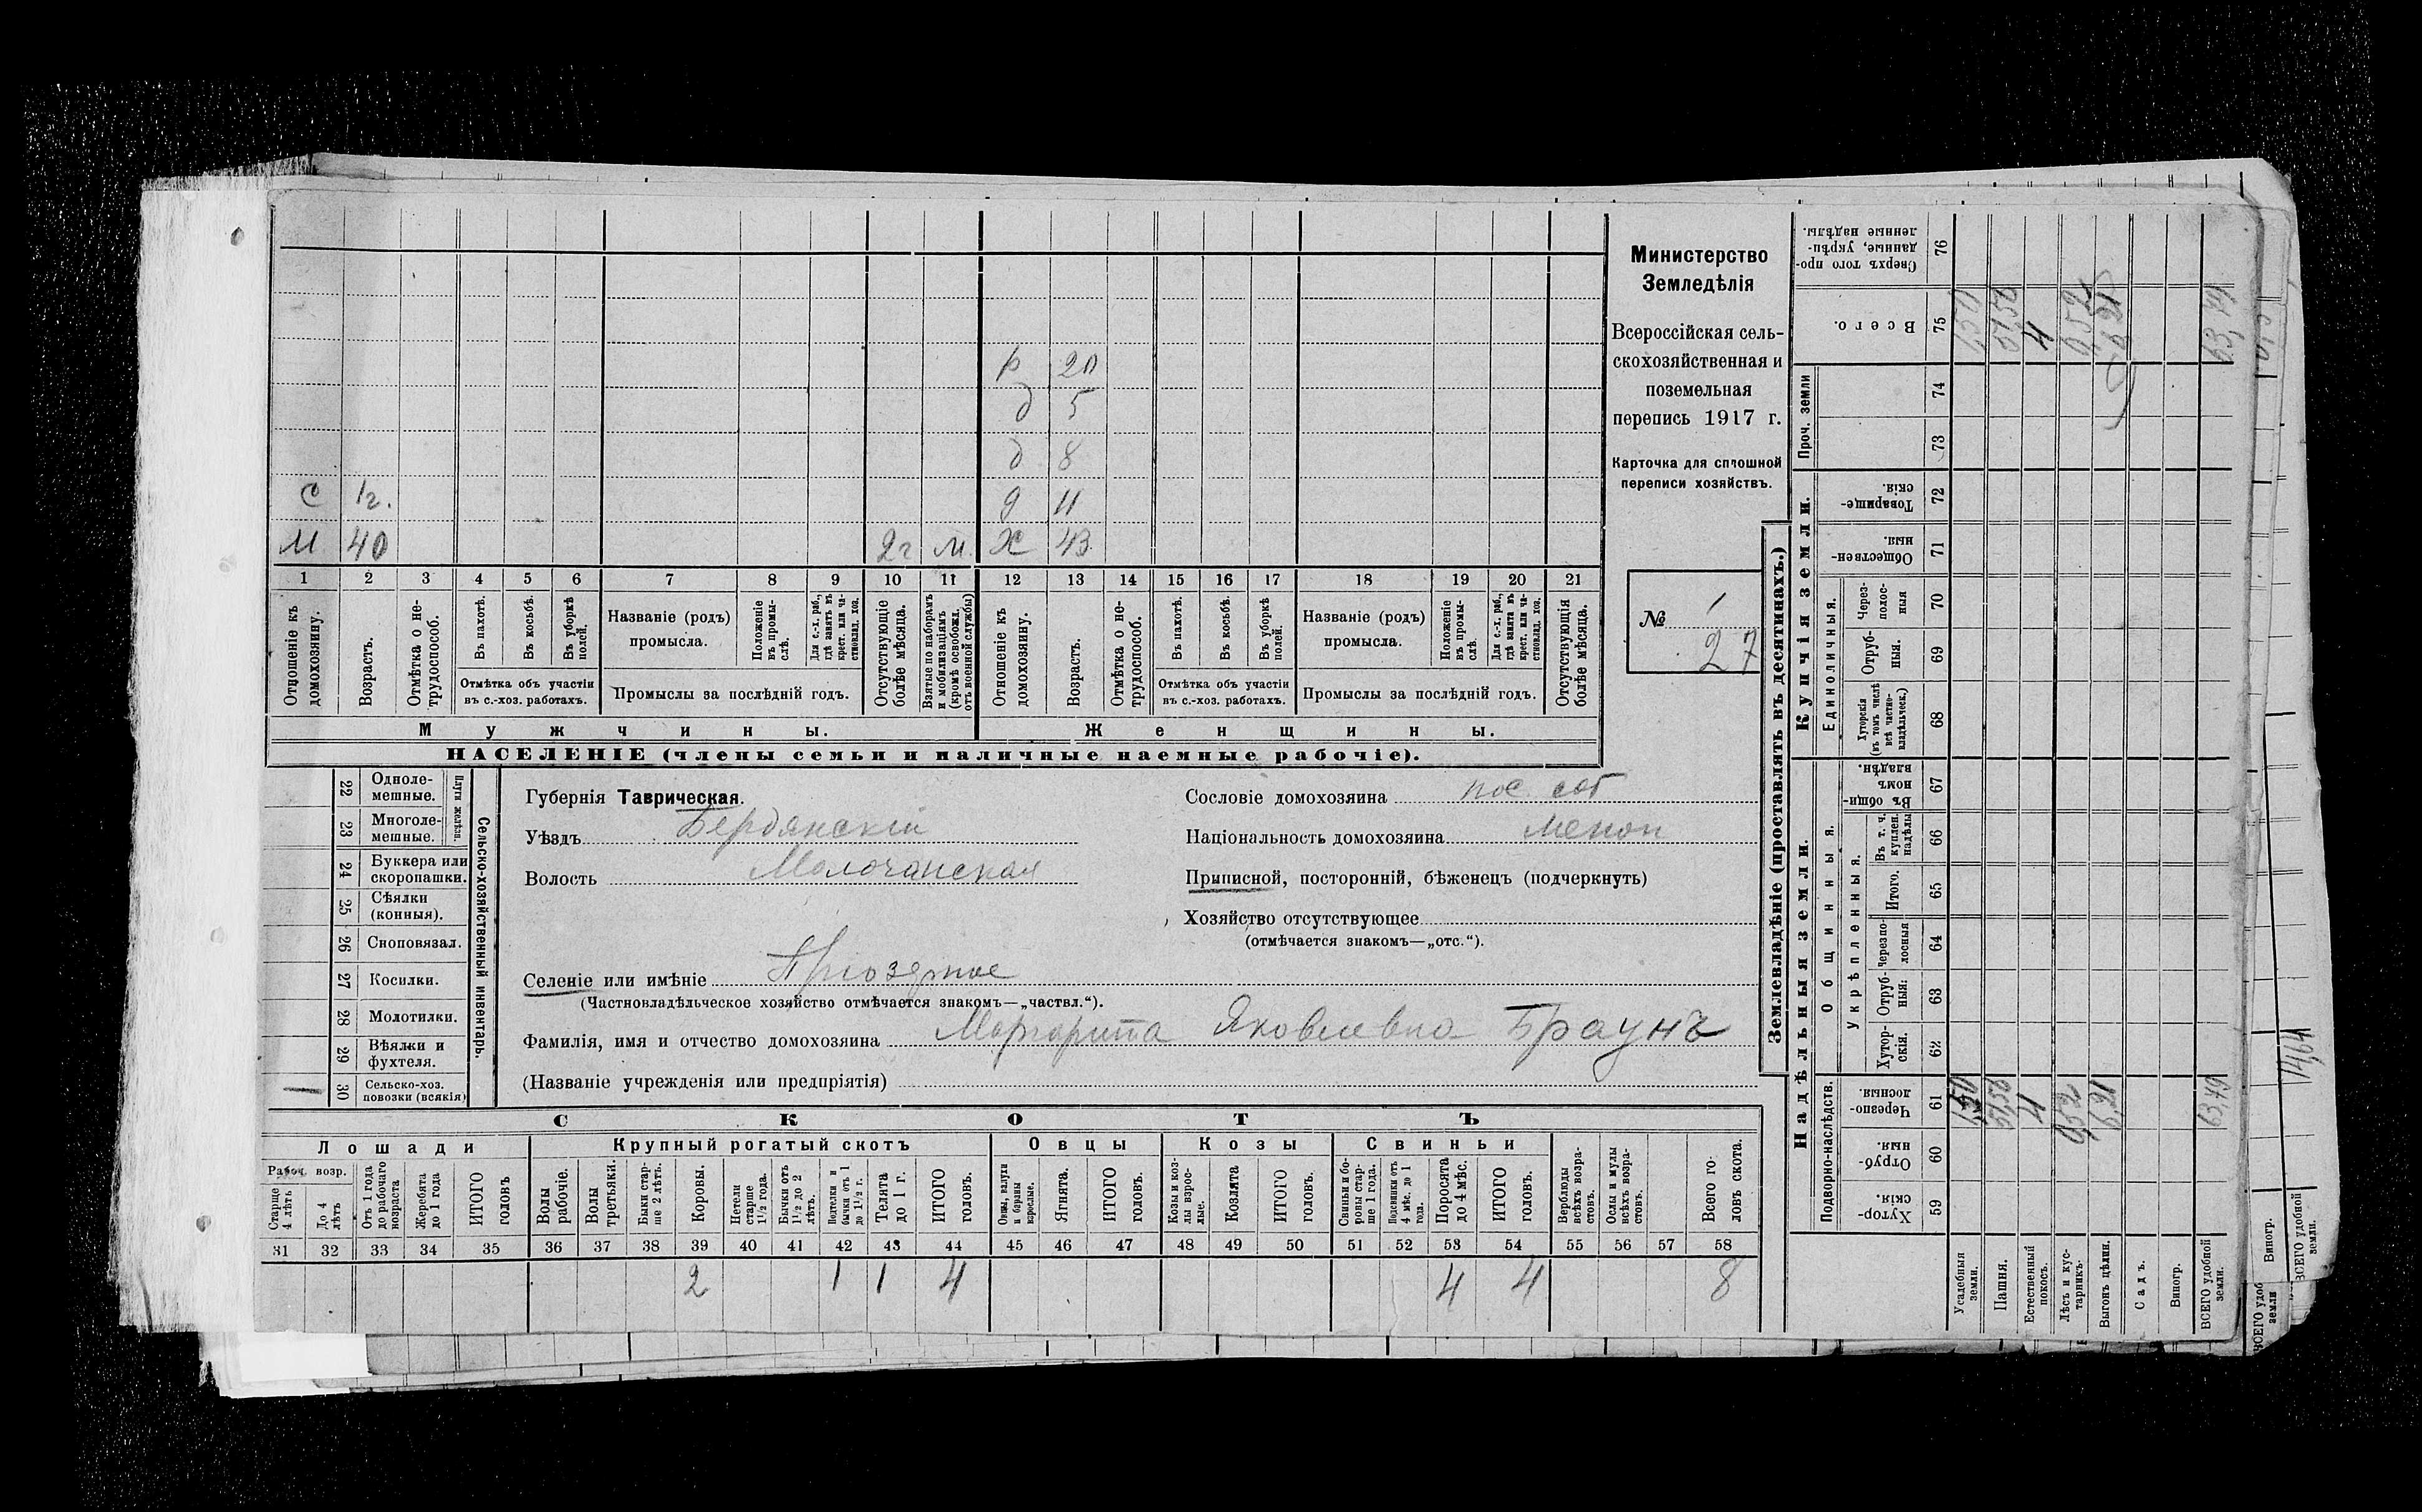 Министерство
Земледѣлія
Всероссійская сель-
скохозяйственная и
поземельная
перепись 1917 г.
Карточка для сплошной
переписи хозяйствъ.
№ 1
27
р 20
д 5
д 8
С 1г. д 11
М 40 2г М Ж 43
1 2 3 4 5 6 7 8 9 10 11 12 13 14 15 16 17 18 19 20 21
Отношеніе къ домохозяину.
Возрастъ.
Отмѣтка о не-трудоспособ.
Въ пахотѣ.
Въ косьбѣ.
Въ уборкѣ полей.
Отмѣтка объ участіи
въ с.-хоз. работахъ.
Названіе (родъ)
промысла.
Положеніе въ промы-слѣ.
Для с.-х. раб., гдѣ занятъ въ крест. или ча-стновлад. хоз.
Промыслы за послѣдній годъ.
Отсутствующіе болѣе мѣсяца.
Взятые по наборамъ и мобилизаціямъ (кромѣ освобожд. отъ военной службы)
Отношеніе къ домохозяину.
Возрастъ.
Отмѣтка о не-трудоспособ.
Въ пахотѣ.
Въ косьбѣ.
Въ уборкѣ полей.
Отмѣтка объ участіи
въ с.-хоз. работахъ.
Названіе (родъ)
промысла.
Положеніе въ промы-слѣ
Для с.-х. раб., гдѣ занята въ крест. или ча-стновлад. хоз.
Промыслы за послѣдній годъ.
Отсутствующія болѣе мѣсяца.
Мужчины. Женщины.
НАСЕЛЕНІЕ (члены семьи и наличные наемные рабочіе).
Сельско-хозяйственный инвентарь.
Плуги желѣзн.
22 Одноле-мешные.
23 Многоле-мешные.
24 Буккера или скоропашки.
25 Сѣялки (конныя).
26 Сноповязал.
27 Косилки.
28 Молотилки.
29 Вѣялки и фухтеля.
1 30 Сельско-хоз. повозки (всякія)
Губернія Таврическая.
Уѣздъ Бердянскій
Волость Молочанская
Селеніе или имѣніе Приозерное
(Частновладѣльческое хозяйство отмѣчается знакомъ—„частвл.“).
Фамилія, имя и отчество домохозяина Маргарита Яковлевна Браунъ
(Названіе учрежденія или предпріятія)
Сословіе домохозяина пос. соб
Національность домохозяина Менон
Приписной, посторонній, бѣженецъ (подчеркнуть)
Хозяйство отсутствующее
(отмѣчается знакомъ—„отс.“).
СКОТЪ
Лошади Крупный рогатый скотъ Овцы Козы Свиньи
Рабоч. возр.
Старще 4 лѣтъ
До 4 лѣтъ
Отъ 1 года до рабочаго возраста
Жеребята до 1 года
ИТОГО головъ
Волы рабочіе.
Волы третьяки.
Быки стар-ше 2 лѣтъ.
Коровы.
Нетели старше 1½ года.
Бычки отъ 1½ до 2 лѣтъ.
Подтелки и бычки отъ 1 до 1½ г.
Телята до 1 г.
ИТОГО головъ.
Овцы, валухи и бараны взрослые.
Ягнята.
ИТОГО головъ.
Козы и коз-лы взрос-лые.
Козлята
ИТОГО головъ.
Свиньи и бо-ровы стар-ше 1 года.
Подсвинки отъ 4 мѣс. до 1 года.
Поросята до 4 мѣс.
ИТОГО головъ.
Верблюды всѣхъ возра-стовъ.
Ослы и мулы всѣхъ возра-стовъ.
Всего го-ловъ скота.
31 32 33 34 35 36 37 38 39 40 41 42 43 44 45 46 47 48 49 50 51 52 53 54 55 56 57 58
2 1 1 4 4 4 8
Землевладѣніе (проставлять въ десятинахъ.)
Надѣльныя земли. Купчія земли.
Проч. земли
Подворно-наслѣдств.
Общинныя.
Укрѣпленныя.
Единоличныя.
Сверхъ того про-данные, укрѣп-ленные надѣлы. 76
Всего. 75
74
73
Товарище-скія. 72
Обществен-ныя. 71
Через-полос-ныя 70
Отруб-ныя. 69
Хуторскія (въ томъ числѣ всѣ частно-владѣльческ.) 68
Въ общи-номъ владѣн. 67
Въ т. ч. куплен. надѣлы 66
Итого. 65
Черезпо-лосныя 64
Отруб-ныя: 63
Хутор-скія. 62
Черезпо-лосныя 61
Отруб-ныя. 60
Хутор-скія. 59
Усадебныя земли. 1,50
Пашня. 51,52
Естественный покосъ. 4
Лѣсъ и кус-тарникъ. 0,52
Выгонъ цѣлин. 6,21
Садъ.
Виногр.
ВСЕГО удобной земли. 63,79
Виногр.
ВСЕГО удобной земли.
14,64
ВСЕГО удоб земли